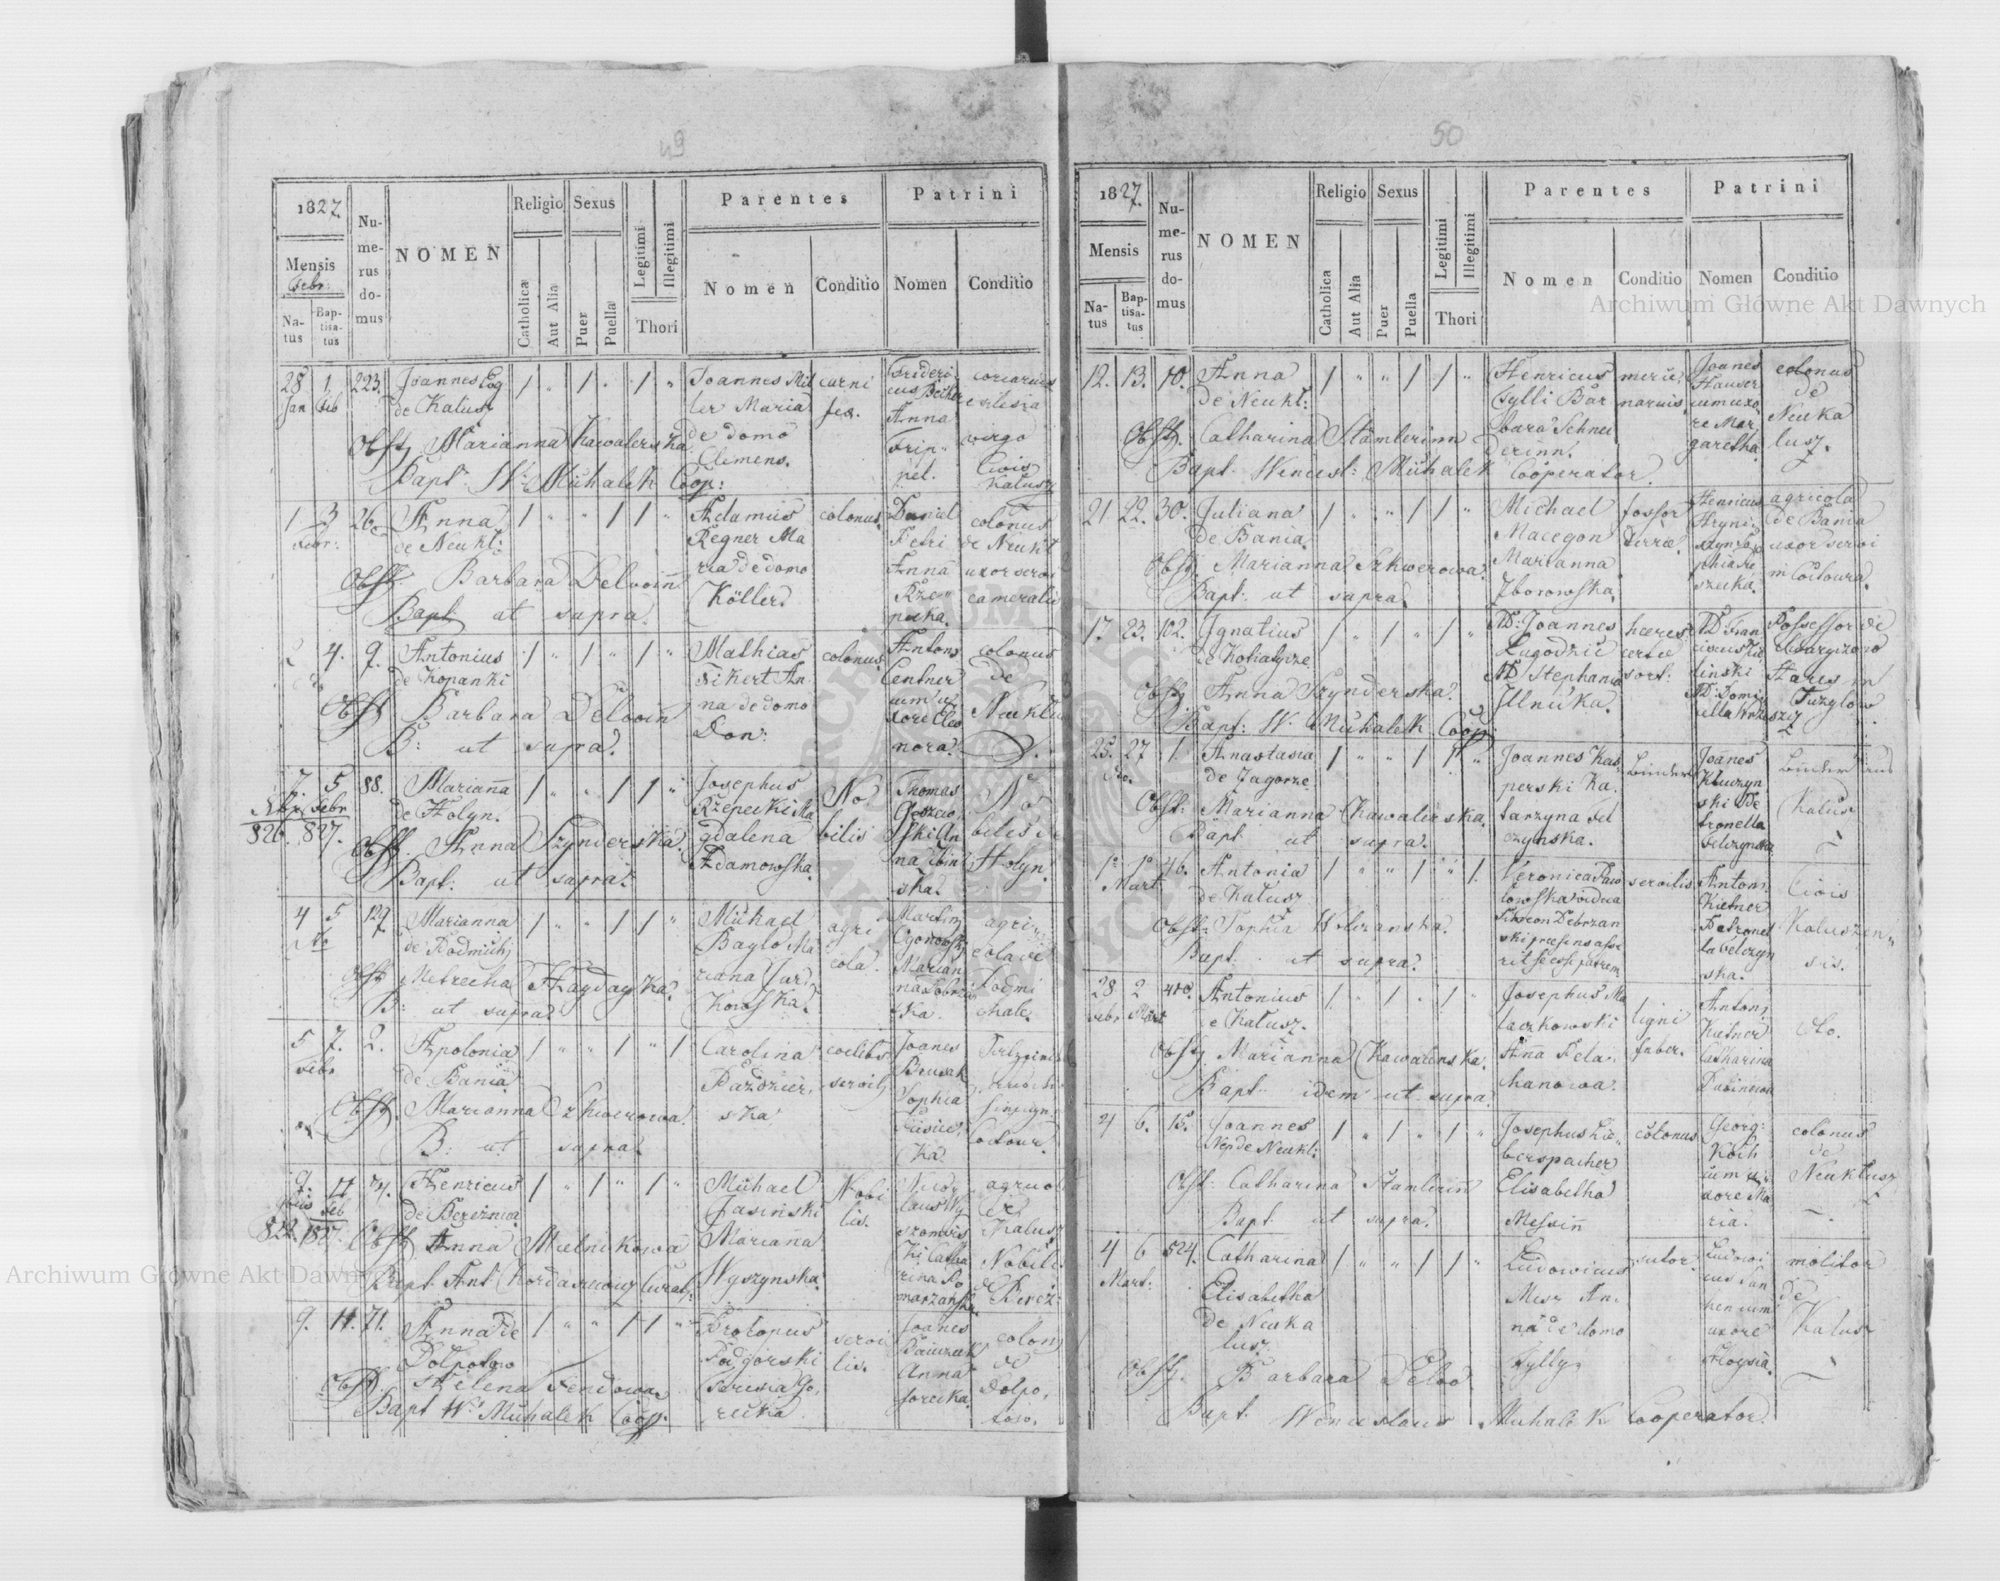 49
1827
Mensis
Febr:
Natus
Baptisatus
Numerus domus
NOMEN
Religio
Catholica
Aut Alia
Sexus
Puer
Puella
Legitimi
Illegitimi
Thori
Parentes
Nomen
Conditio
Patrini
Nomen
Conditio
28 Jan
1. feb
223.
Joannes
de Kalusz
Obst Marianna Kawalerska
Bapt: W. Muhalek Coop:
Joannes Mil
ler Maria
de domo
Clemens.
carni
fex.
Frideri
cus
Anna
virgo
Civis
Kalusz
1 3 Febr:
26.
Anna
de Neukl:
Obst Barbara Delvoin
Bapt ut supra.
Adamus
Regner Ma
ria de domo
Köller
colonus.
Daniel
Petri
Anna
Rze
pecka.
colonus
de Neukl
uxor servi
cameralis
4. 9.
Antonius
de Kopanki
Obst Barbara Delvoin
B: ut supra.
Mathias
Sikert An
na de domo
Don:
colonus
Anton
Centner
cum u
xore Eleo
nora.
colonus
de
Neuklu
7. Xbr 826.
5 febr 827.
88.
Mariana
de Holyn.
Obst. Anna Szynderska.
Bapt: ut supra.
Josephus
Rzepecki Ma
gdalena
Adamowska.
No
bilis
Thomas
ski An
na
ska.
No
bilis de
Holyn.
4 5
129
Marianna
de Podmich
Obst Metrecka Hayduyka.
B: ut supra
Michael
Baylo Ma
riana Jur
kowska.
agri
cola.
Martin
Ogonowsk
Marian
na Dobrzan
ska.
agri
cola de
Podmi
chale.
5 7. febr
2.
Apolonia
de Bania
Obst. Marianna Szkwerowa
B: ut supra.
Carolina
Pazdzier
ska
coelebs
servil
Joanes
Brusak
Sophia
ka.
9. 9bris 822.
11 feb 1827.
74.
Henricus
de Bereznica
Obst Anna Mielnikowa
Bapt Ant Kordasiewicz Curat:
Michael
Jasinski
Mariana
Wyszynska.
Nobi
lis.
Nico
laus Wy
szomirs
ki Catha
rina Po
marzanska.
agricol
de
Kalusz
Nobilis
de Berez:
9. 11. 71.
Anna de
Dolpotow
Obst Helena Fendowa
Bapt W. Muhalek Coop.
Procopus
Podgorski
Teresia Go
recka.
servi
lis.
Joanes
Anna
Gorecka.
colon
de
Dolpo
tow.
50
1827.
Mensis
Natus
Baptisatus
Numerus domus
NOMEN
Religio
Catholica
Aut Alia
Sexus
Puer
Puella
Legitimi
Illegitimi
Thori
Parentes
Nomen
Conditio
Patrini
Nomen
Conditio
12. 13. 10.
Anna
de Neukl:
Obst. Catharina Stamlerinn
Bapt. Wencesl: Muhalek Cooperator.
Henricus
Sylli Bar
bara Schnei
derinn.
merce
narius.
Joanes
Hauser
cum uxo
re Mar
garetha.
colonus
de
Neuka
lusz.
21. 22. 30.
Juliana
de Bania.
Obst. Marianna Szkwerowa.
Bapt: ut supra.
Michael
Macegon
Marianna
Zborowska.
fossor
terrae.
Henricus
Hryni
agricola
de Bania
uxor servi
in Coctura.
17. 23. 102.
Ignatius
de Kobialyce
Obst. Anna Szynderska.
Bapt: W. Muhalek Coop:
D: Joannes
Lugodzic
D Stephania
Ilnicka.
haeres
certae
sort:
D Fran
ciscus
linski
D: Domi
cella
Possessor de
25. 27 1.
Anastasia
de Zagorze.
Obst: Marianna Kawalerska.
Bapt ut supra.
Joannes Kas
perski Ka
tarzyna
czynska.
Joanes
Kluczyn
ski Pe
tronella
belczynska
Kalusz
1a 1a Mart.
46.
Antonia
de Kalusz
Obst: Sophia Holiranska.
Bapt. ut supra.
Veronica Paw
lowska vidua
Simeon Debrzan
ski praesens asse
rit se esse patrem
servilis
Anton
Kietner
Petronel
la belczyn
ska.
Civis
Kaluszen
sis.
28. febr
2 Mart
410.
Antonius
de Kalusz.
Obst Marianna Kawalerska.
Bapt idem ut supra.
Josephus Ma
laczkowski
Anna Fela
hanowa.
ligni
faber.
Anton
Kietner
Catharina
dto.
4 6. 15.
Joannes
Nep de Neukl:
Obst. Catharina Stamlerin
Bapt ut supra.
Josephus Lie
berspacher
Elisabetha
Messin
colonus
Georg:
Koch
cum u
xore Ma
ria.
colonus
de
Neuklusz
4 6 Mart:
524.
Catharina
Elisabetha
de Neuka
lusz.
Obst. Barbara Delvo
Bapt. Wenceslaus Muhalek Cooperator.
Ludowicus
Mesz An
na de domo
Sylly
sutor.
Ludowi
cus San
hen cum
uxore
Aloysia.
molitor
de
Kalusz
Archiwum Główne Akt Dawnych
Archiwum Główne Akt Dawnych